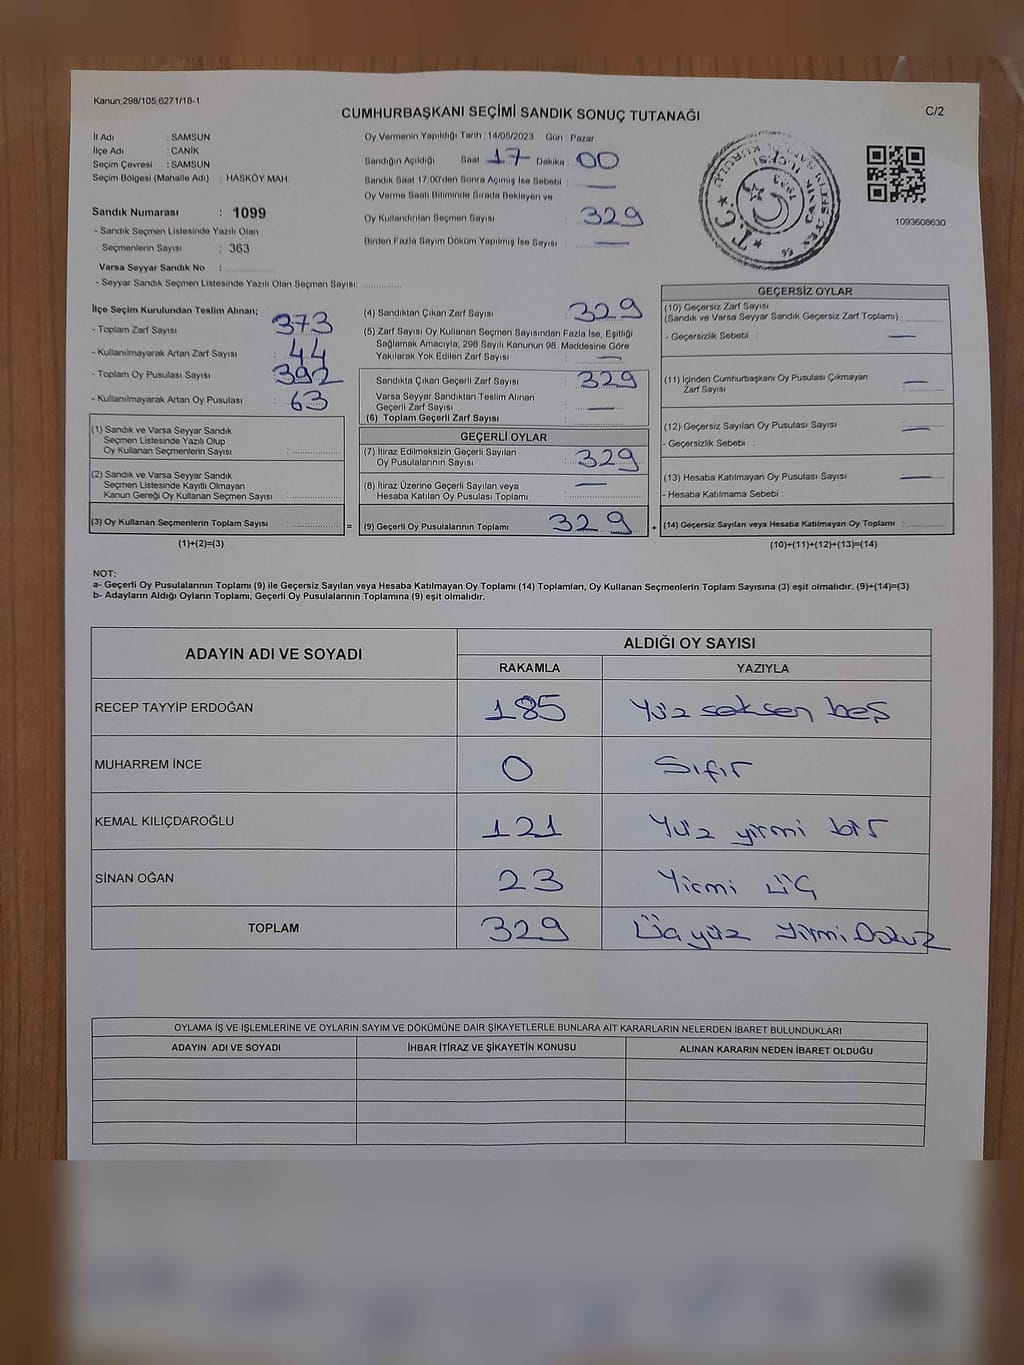 Kanun;298/105;6271/18-1
C/2
CUMHURBAŞKANI SEÇİMİ SANDIK SONUÇ TUTANAĞI
İl Adı : SAMSUN
İlçe Adı : CANİK
Seçim Çevresi : SAMSUN
Seçim Bölgesi (Mahalle Adı) : HASKÖY MAH.
Sandık Numarası : 1099
- Sandık Seçmen Listesinde Yazılı Olan
Seçmenlerin Sayısı : 363
Varsa Seyyar Sandık No :
- Seyyar Sandık Seçmen Listesinde Yazılı Olan Seçmen Sayısı:
Oy Vermenin Yapıldığı Tarih : 14/05/2023 Gün : Pazar
Sandığın Açıldığı Saat 17 Dakika : 00
Sandık Saat 17:00'den Sonra Açımış İse Sebebi : —
Oy Verme Saati Bitiminde Sırada Bekleyen ve
Oy Kullandırılan Seçmen Sayısı : 329
Birden Fazla Sayım Döküm Yapılmış İse Sayısı : —
1093608630
İlçe Seçim Kurulundan Teslim Alınan;
- Toplam Zarf Sayısı : 373
- Kullanılmayarak Artan Zarf Sayısı : 44
- Toplam Oy Pusulası Sayısı : 392
- Kullanılmayarak Artan Oy Pusulası : 63
(1) Sandık ve Varsa Seyyar Sandık
Seçmen Listesinde Yazılı Olup
Oy Kullanan Seçmenlerin Sayısı :
(2) Sandık ve Varsa Seyyar Sandık
Seçmen Listesinde Kayıtlı Olmayan
Kanun Gereği Oy Kullanan Seçmen Sayısı :
(3) Oy Kullanan Seçmenlerin Toplam Sayısı : =
(1)+(2)=(3)
(4) Sandıktan Çıkan Zarf Sayısı : 329
(5) Zarf Sayısı Oy Kullanan Seçmen Sayısından Fazla İse, Eşitliği
Sağlamak Amacıyla; 298 Sayılı Kanunun 98. Maddesine Göre
Yakılarak Yok Edilen Zarf Sayısı : —
Sandıkta Çıkan Geçerli Zarf Sayısı : 329
Varsa Seyyar Sandıktan Teslim Alınan
Geçerli Zarf Sayısı : —
(6) Toplam Geçerli Zarf Sayısı :
GEÇERLİ OYLAR
(7) İtiraz Edilmeksizin Geçerli Sayılan
Oy Pusulalarının Sayısı : 329
(8) İtiraz Üzerine Geçerli Sayılan veya —
Hesaba Katılan Oy Pusulası Toplamı :
(9) Geçerli Oy Pusulalarının Toplamı : 329 +
GEÇERSİZ OYLAR
(10) Geçersiz Zarf Sayısı
(Sandık ve Varsa Seyyar Sandık Geçersiz Zarf Toplamı) :
- Geçersizlik Sebebi : —
(11) İçinden Cumhurbaşkanı Oy Pusulası Çıkmayan —
Zarf Sayısı :
(12) Geçersiz Sayılan Oy Pusulası Sayısı : —
- Geçersizlik Sebebi :
(13) Hesaba Katılmayan Oy Pusulası Sayısı : —
- Hesaba Katılmama Sebebi :
(14) Geçersiz Sayılan veya Hesaba Katılmayan Oy Toplamı :
(10)+(11)+(12)+(13)=(14)
NOT:
a- Geçerli Oy Pusulalarının Toplamı (9) ile Geçersiz Sayılan veya Hesaba Katılmayan Oy Toplamı (14) Toplamları, Oy Kullanan Seçmenlerin Toplam Sayısına (3) eşit olmalıdır. (9)+(14)=(3)
b- Adayların Aldığı Oyların Toplamı, Geçerli Oy Pusulalarının Toplamına (9) eşit olmalıdır.
ADAYIN ADI VE SOYADI ALDIĞI OY SAYISI
RAKAMLA YAZIYLA
RECEP TAYYİP ERDOĞAN 185 Yüz seksen beş
MUHARREM İNCE 0 Sıfır
KEMAL KILIÇDAROĞLU 121 Yüz yirmi bir
SİNAN OĞAN 23 Yirmi üç
TOPLAM 329 Üçyüz Yirmi Dokuz
OYLAMA İŞ VE İŞLEMLERİNE VE OYLARIN SAYIM VE DÖKÜMÜNE DAİR ŞİKAYETLERLE BUNLARA AİT KARARLARIN NELERDEN İBARET BULUNDUKLARI
ADAYIN ADI VE SOYADI İHBAR İTİRAZ VE ŞİKAYETİN KONUSU ALINAN KARARIN NEDEN İBARET OLDUĞU